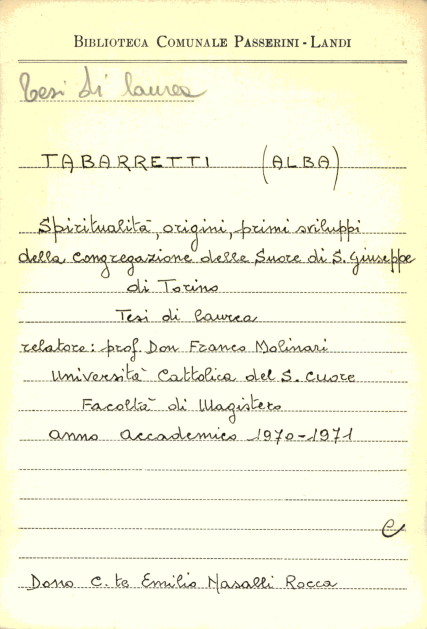 BIBLIOTECA COMUNALE PASSERINI-LANDI
Tesi di laurea
TABARRETTI (ALBA)
Spiritualità, origini, primi sviluppi
della Congregazione delle Suore di S. Giuseppe
di Torino
Tesi di laurea
relatore: prof. Don Franco Molinari
Università Cattolica del S. Cuore
Facoltà di Magistero
anno accademico 1970-1971
e
Dono C.te Emilio Nasalli Rocca